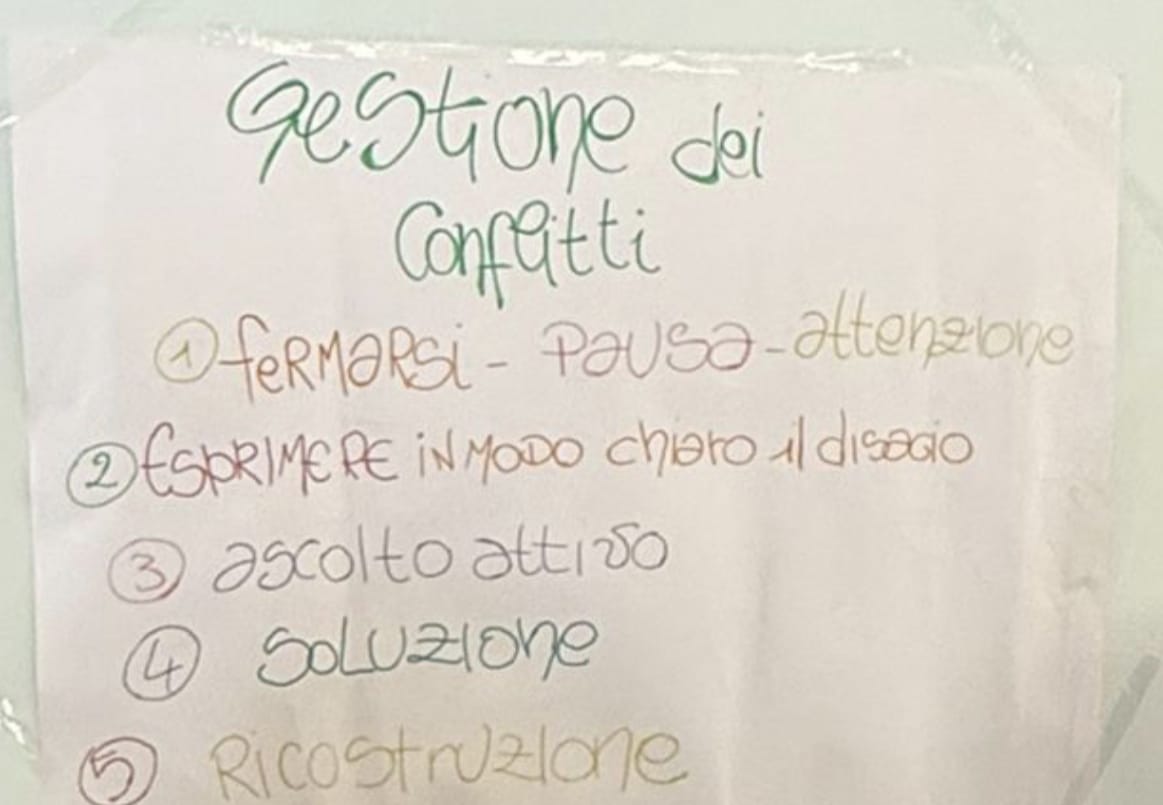 Gestione dei
Conflitti
① feRMaRsi - Pausa - attenzione
② ESPRIMERE iN MODO chiaro il disagio
③ ascolto attivo
④ SoLuzione
⑤ Ricostruzione